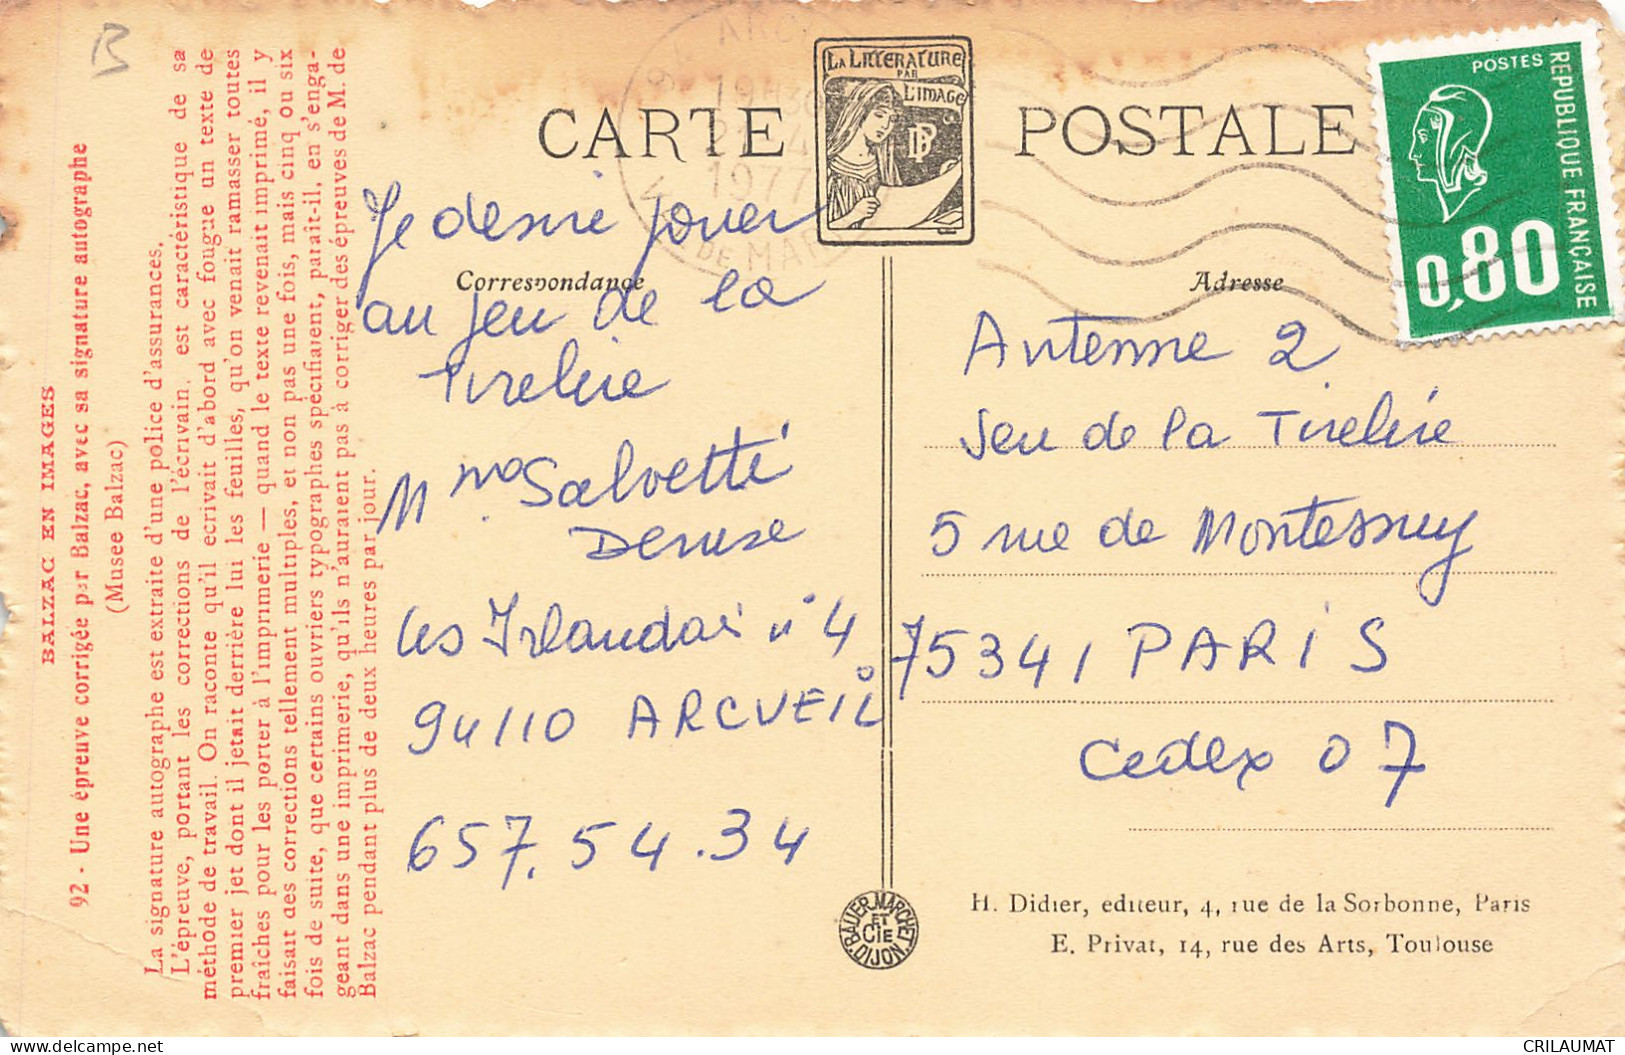 B
BALZAC EN IMAGES
92 - Une épreuve corrigée par Balzac, avec sa signature autographe
(Musee Balzac)
La signature autographe est extraite d'une police d'assurances.
L'épreuve, portant les corrections de l'écrivain, est caractéristique de sa
méthode de travail. On raconte qu'il ecrivait d'abord avec fougue un texte de
premier jet dont il jetait derrière lui les feuilles, qu'on venait ramasser toutes
fraîches pour les porter à l'imprimerie — quand le texte revenait imprimé, il y
faisait des corrections tellement multiples, et non pas une fois, mais cinq ou six
fois de suite, que certains ouvriers typographes spécifiaient, paraît-il, en s'enga-
geant dans une imprimerie, qu'ils n'auraient pas à corriger des épreuves de M. de
Balzac pendant plus de deux heures par jour.
CARTE POSTALE
LA LITTERATURE
PAR
L'IMAGE
ARC
19H30
1977
DE MAR
POSTES
REPUBLIQUE FRANÇAISE
0,80
Correspondance
Je desire jouer
au jeu de la
tirelire
Mme Salvetti
Denise
Les Irlandais n° 4
94110 ARCVEIL
657.54.34
Adresse
Antenne 2
Jeu de la Tirelire
5 rue de Montessuy
75341 PARIS
Cedex 07
BAUER, MARCHET
ET
CIE
DIJON
H. Didier, editeur, 4, rue de la Sorbonne, Paris
E. Privat, 14, rue des Arts, Toulouse
delcampe.net
CRILAUMAT